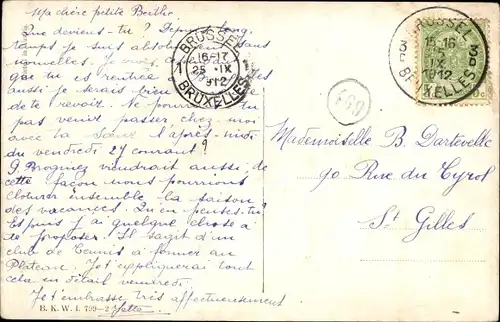 Ma chère petite Berthe
Que deviens-tu? Depuis long-
temps je suis absolument sans
que tu es rentrée
aussi je serais bien
de te revoir. Ne pourrais-tu
pas venir passer chez moi
avec ta sœur l'après-midi
du vendredi 27 courant?
G Brogniez viendrait aussi, de
cette façon nous pourrions
clôturer ensemble la saison
des vacances. Qu'en penses-tu?
Et puis j'ai quelque chose à
te proposer. Il s'agit d'un
club de tennis à former au
Plateau. Je t'expliquerai tout
cela en détail vendredi.
Je t'embrasse très affectueusement
B. K. W. I. 799-2 Yette
BRUSSEL
16-17
1 25 IX 1
1912
BRUXELLES
BRUSSEL
15-16
3D 25 3D
IX
1912
BRUXELLES
Mademoiselle B. Dartevelle
90 Rue du Tyrol
St Gilles